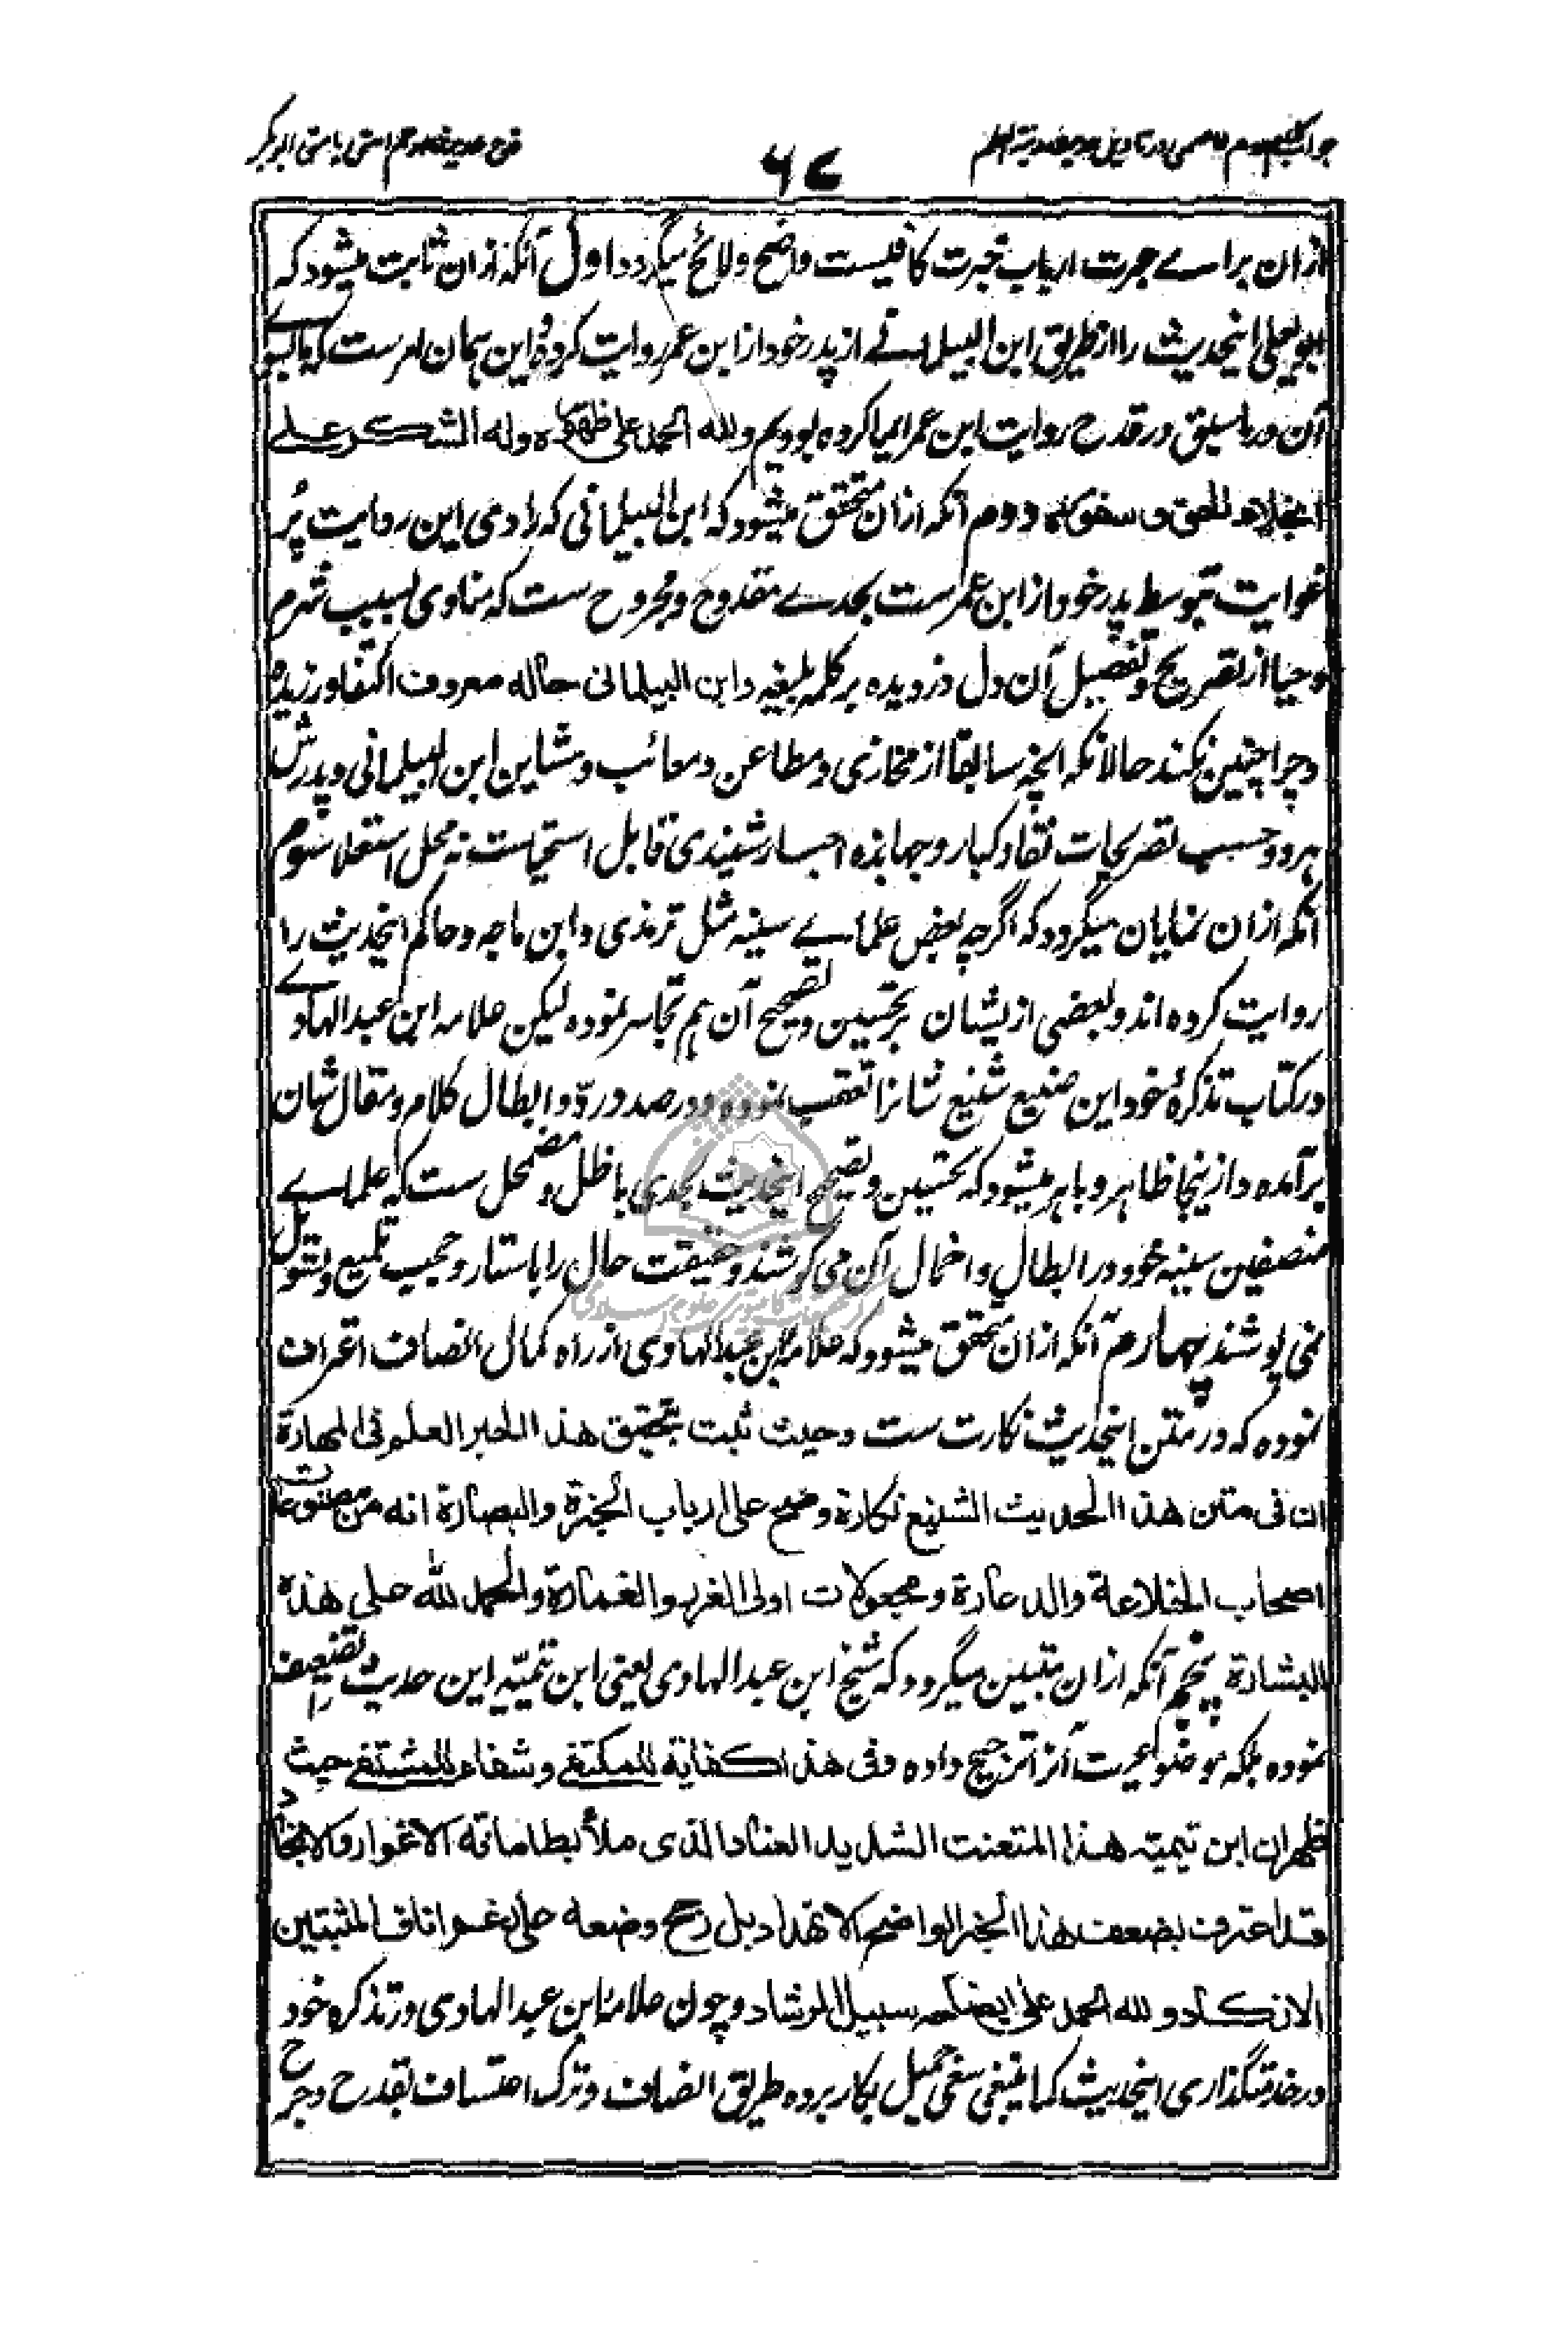 قدح حدیث ارحم امتی بامتی ابوبکر
۶۷
ازان براے حیرت ارباب خبرت کافیست واضح ولائح میگردد اول آنکه ازان ثابت میشود که
ابویعلی اینحدیث را از طریق ابن البیلمانے از پدر خود از ابن عمر روایت کرده و این همان امرست که ما بسوے
آن در ما سبق در قدح روایت ابن عمر ایما کرده بودیم ولله الحمد علی ظهوره وله الشکر علے
انجلاء الحق و سفوره دوم آنکه ازان متحقق میشود که ابن البیلمانی که راوی این روایت پُر
غوایت بتوسط پدر خود از ابن عمرست بحدے مقدوح و مجروح ست که مناوی بسبب شرم
وحیا از تصریح و تفصیل آن دل دزدیده بر کلمه بلیغه و ابن البیلمانی حاله معروف اکتفا ورزیده
و چرا چنین نکند حالانکه آنچه سابقا از مخازی و مطاعن و معائب و مشاین ابن البیلمانی و پدرش
هر دو حسب تصریحات نقاد کبار و جهابذه احبار شنیدی قابل استحیاست نه محل استعلا سوم
آنکه ازان نمایان میگردد که اگرچه بعض علماے سنیه مثل ترمذی و ابن ماجه و حاکم اینحدیث را
روایت کرده اند و بعضی ازیشان بر تحسین و تصحیح آن هم تجاسر نموده لیکن علامه ابن عبد الهادے
در کتاب تذکرهٔ خود این صنیع شنیع شانرا تعقب نموده و در صدد ردّ و ابطال کلام و مقال شان
برآمده و ازینجا ظاهر و باهر میشود که تحسین و تصحیح اینحدیث بحدی باطل و مضمحل ست که علماے
منصفین سنیه خود در ابطال و اخمال آن می کوشند و حقیقت حال را باستار و حجب تلمیع و تسویل
نمی پوشند چهارم آنکه ازان متحقق میشود که علامه ابن عبد الهادی از راه کمال انصاف اعتراف
نموده که در متن اینحدیث نکارت ست وحیث ثبت بتحقیق هذا الحبر العلم فی المهارة
ان فی متن هذا الحدیث الشنیع نکارة وضح علی ارباب الخبرة والبصارة انه من مصنوعات
اصحاب الخلاعة والدعارة ومجعولات اولی الغرر والغمارة والحمد لله علی هذه
البشارة پنجم آنکه ازان متبین میگردد که شیخ ابن عبد الهادی یعنی ابن تیمیّه این حدیث را تضعیف
نموده بلکه موضوعیت آنرا ترجیح داده وفی هذا کفایة للمکتفی وشفاء للمشتفی حیث
ظهر ان ابن تیمیّه هذا المتعنت الشدید العناد الذی ملأ بطاماته الاغوار والانجاد
قد اعترف بضعف هذا الخبر الواضح الانهداد بل رجح وضعه علی رغم اناف المثبتین
الانکاد ولله الحمد علی ایضاحه سبیل الرشاد و چون علامه ابن عبد الهادی در تذکره خود
در خدمتگذاری اینحدیث کما ینبغی سعی جمیل بکار برده طریق انصاف و ترک اعتساف بقدح و جرح